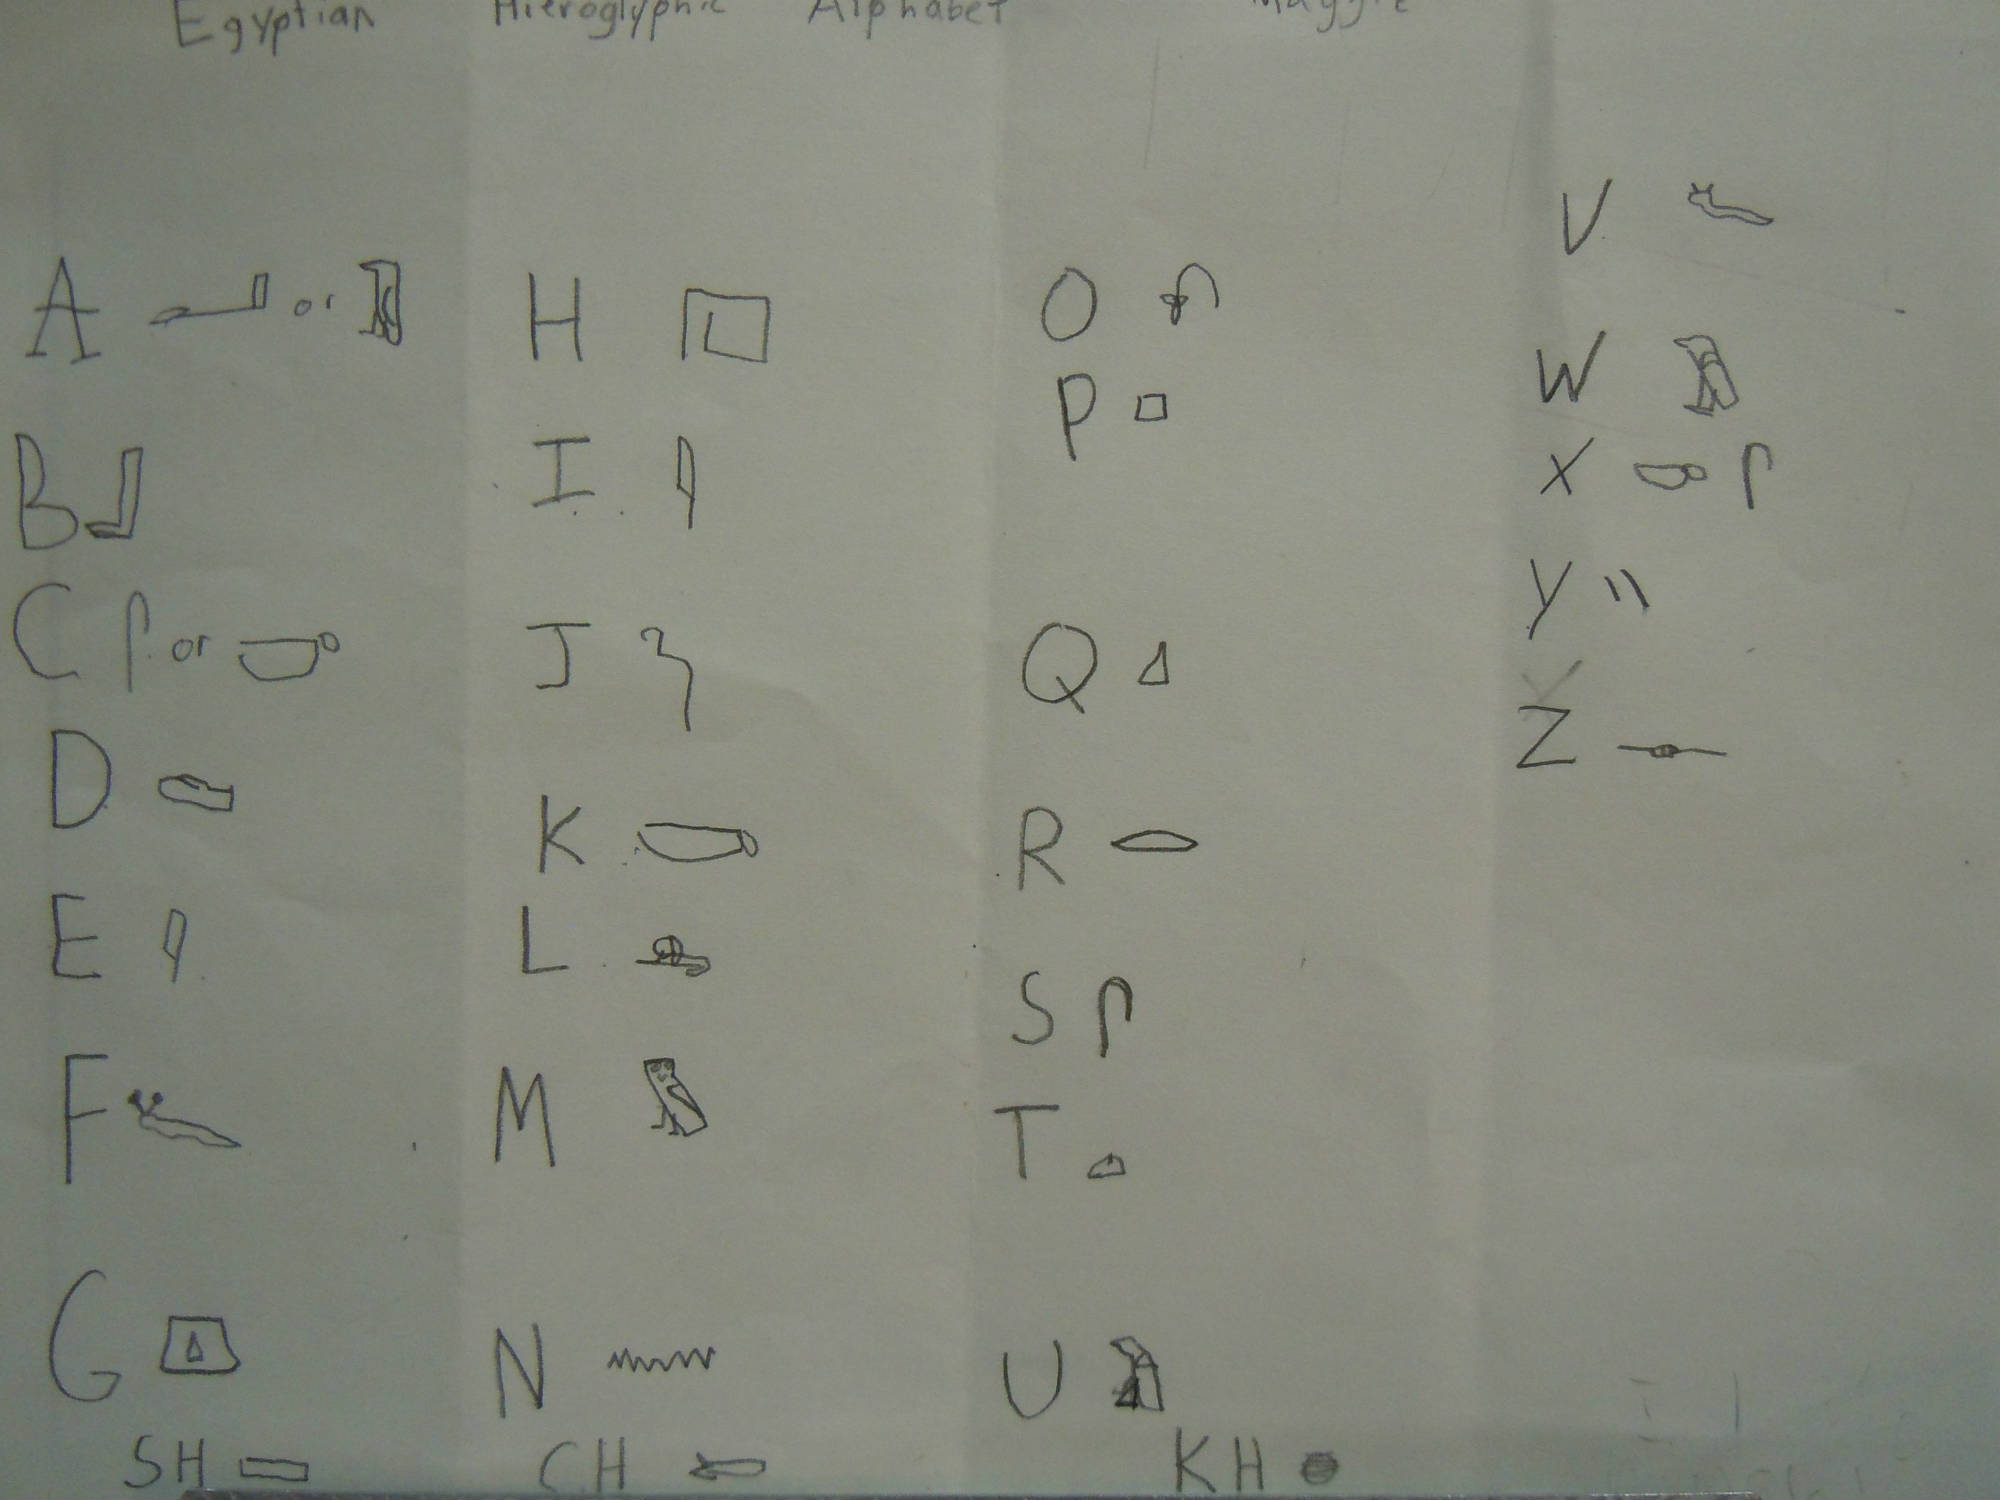 Egyptian Hieroglyphic Alphabet Maggie
A or
B
C or
D
E
F
G
H
I
J
K
L
M
N
O
P
Q
R
S
T
U
V
W
X
Y
Z
SH CH KH